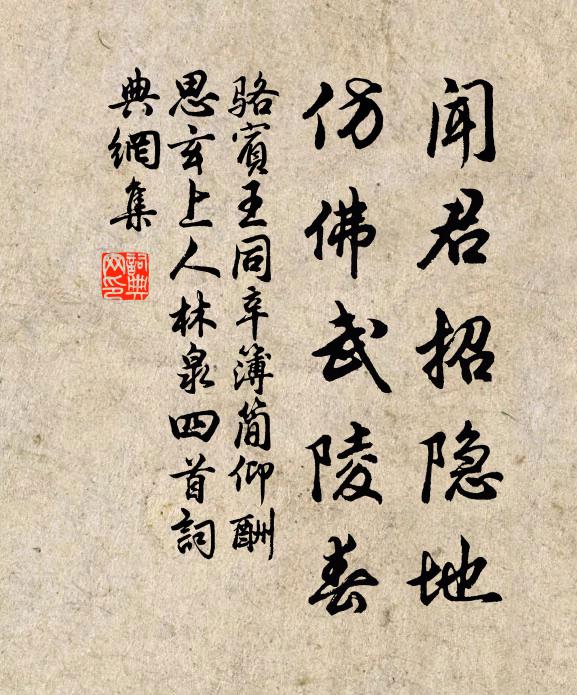 闻君招隐地
仿佛武陵春
骆宾王同辛簿简仰酬
思玄上人林泉四首詞
典網集
詞典
网印